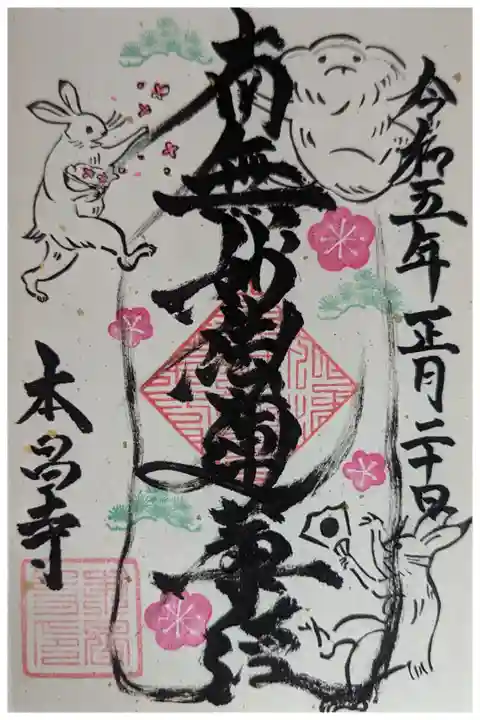 令和五年正月二十日
南無妙法蓮華経
本昌寺